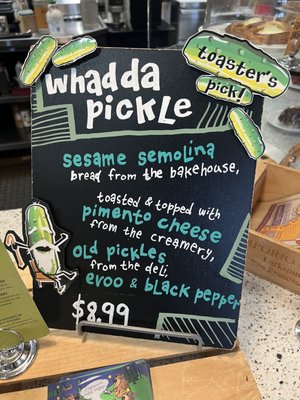 toaster's
pick!
whadda
pickle
sesame semolina
bread from the bakehouse,
toasted & topped with
pimento cheese
from the creamery,
old pickles
from the deli,
evoo & black pepper
$8.99